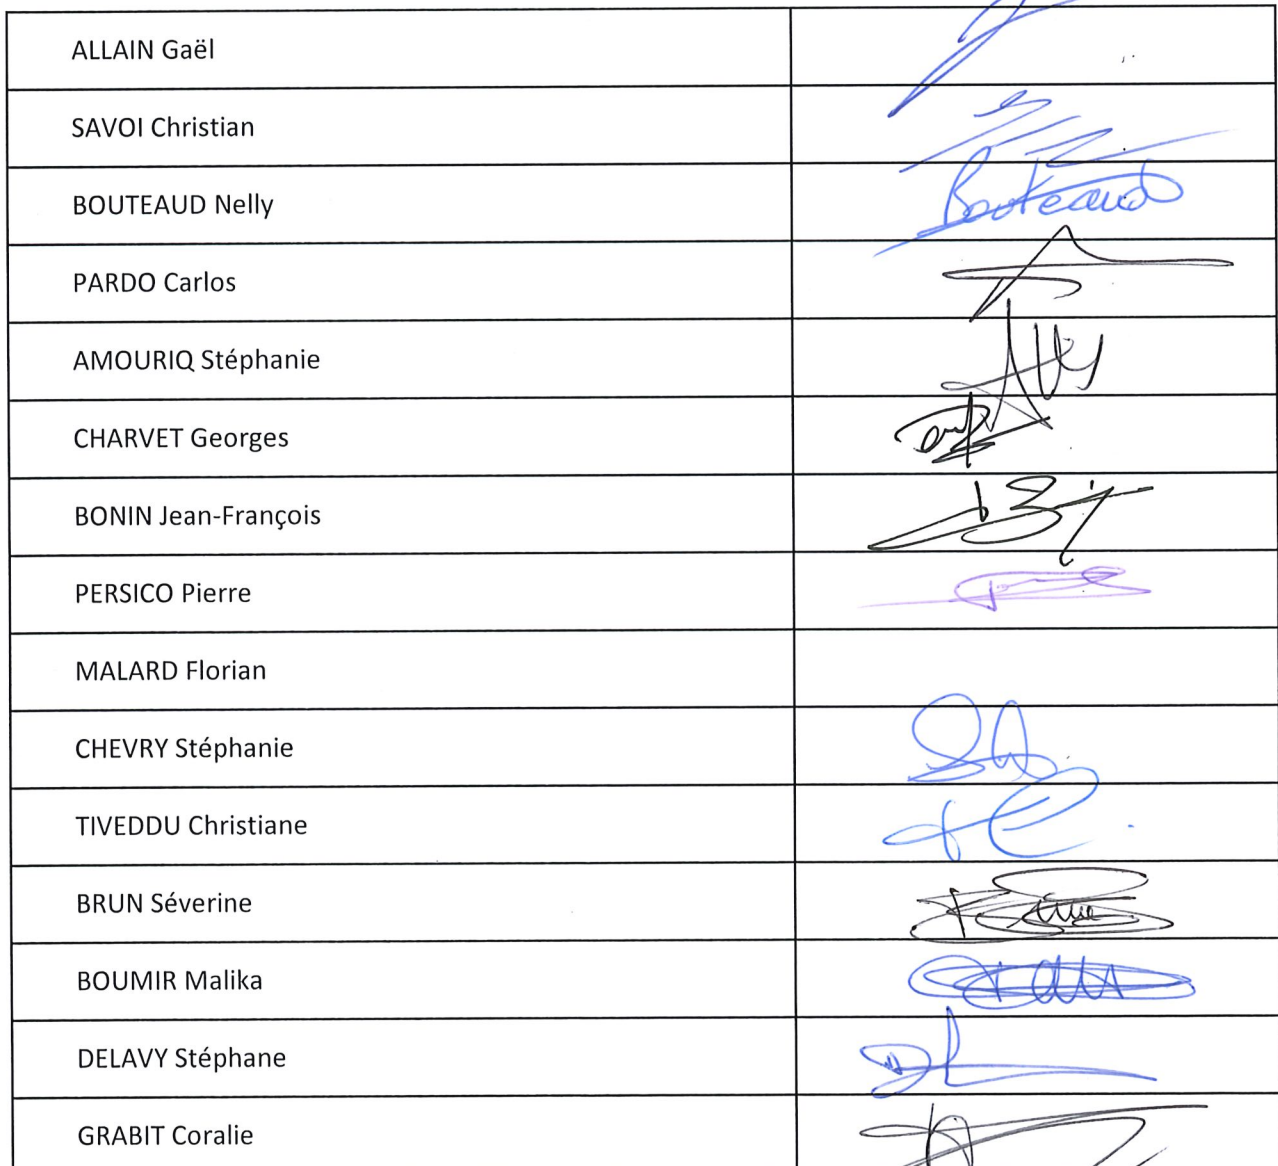 ALLAIN Gaël
SAVOI Christian
BOUTEAUD Nelly
Bouteaud
PARDO Carlos
AMOURIQ Stéphanie
CHARVET Georges
BONIN Jean-François
PERSICO Pierre
MALARD Florian
CHEVRY Stéphanie
TIVEDDU Christiane
BRUN Séverine
BOUMIR Malika
DELAVY Stéphane
GRABIT Coralie